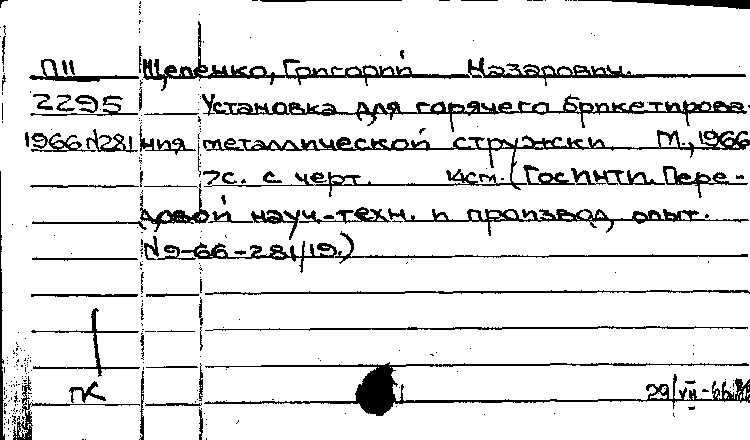 ПII Щепенко, Григорий Назарович.
2295 Установка для горячего брикетирова-
1966 N281 ния металлической стружки. М., 1966
7с. с черт. 14см. (ГОСИНТИ. Пере-
довой науч.-техн. и производ. опыт.
N9-66-281/19.)
ГК 29/VII-66